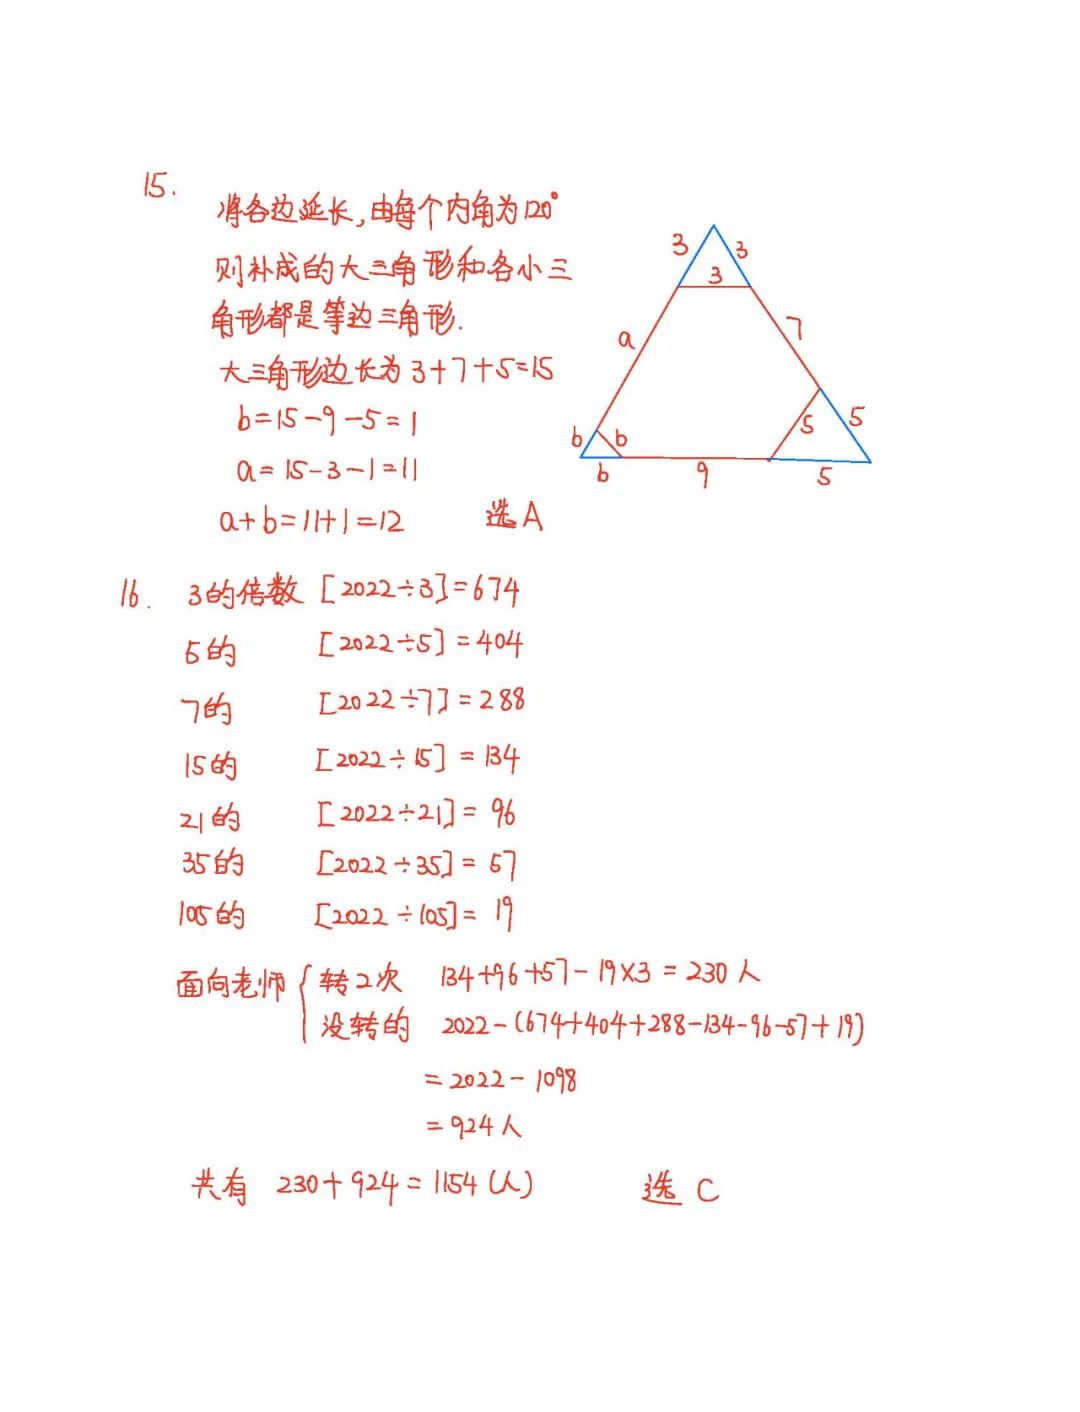 15.
将各边延长,由每个内角为120°
则补成的大三角形和各小三
角形都是等边三角形.
大三角形边长为3+7+5=15
b=15-9-5=1
a=15-3-1=11
a+b=11+1=12 选A
3 3
3
7
a
5 5
b b
b 9 5
16. 3的倍数 [2022÷3]=674
5的 [2022÷5]=404
7的 [2022÷7]=288
15的 [2022÷15]=134
21的 [2022÷21]=96
35的 [2022÷35]=57
105的 [2022÷105]=19
面向老师 { 转2次 134+96+57-19×3=230人
没转的 2022-(674+404+288-134-96-57+19)
=2022-1098
=924人
共有 230+924=1154(人) 选 C